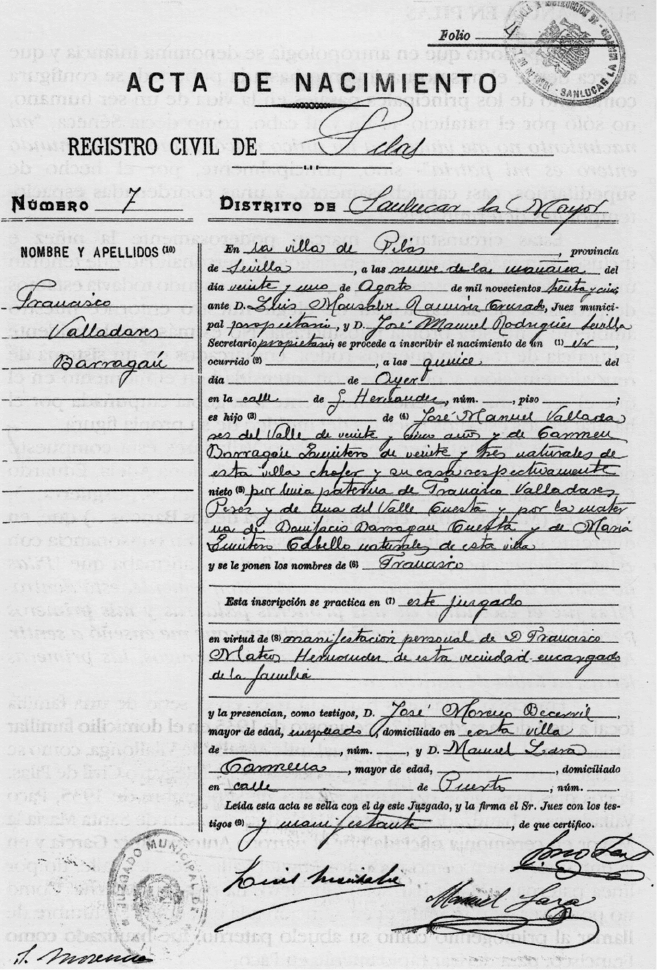 Folio 4
SANLUCAR LA
ACTA DE NACIMIENTO
REGISTRO CIVIL DE Pilas
NÚMERO 7
DISTRITO DE Sanlucar la Mayor
NOMBRE Y APELLIDOS (10)
Francisco
Valladares
Barragán
En la villa de Pilas, provincia
de Sevilla, a las nueve de la mañana del
día veinte y uno de Agosto de mil novecientos treinta y cinco
ante D. Luis Monsalve Ramirez Cruzado, Juez munici-
pal propietario, y D. José Manuel Rodriguez Sevilla
Secretario propietario, se procede a inscribir el nacimiento de un (1)
ocurrido (2), a las quince del
día de Ayer
en la calle de G. Hernandez, núm. , piso ;
es hijo (3) de (4) José Manuel Vallada
res del Valle de veinte y cinco años y de Carmen
Barragán Quintero de veinte y tres naturales de
esta villa chofer y su casa respectivamente
nieto (5) por linia paterna de Francisco Valladares
Peros y de Ana del Valle Cuesta y por la mater
na de Bonifacio Barragan Cuesta y de Maria
Quintero Cabello naturales de esta villa
y se le ponen los nombres de (6) Francisco
Esta inscripción se practica en (7) este juzgado
en virtud de (8) manifestación personal de D Francisco
Mateos Hernandez de esta vecindad encargado
de la familia
y la presencian, como testigos, D. José Moreno
mayor de edad, empleado, domiciliado en esta villa
de , núm. , y D. Manuel Lara
Carmena, mayor de edad, domiciliado
en calle de Puerto, núm.
Leída esta acta se sella con el de este Juzgado, y la firma el Sr. Juez con los tes-
tigos (9) y manifestante, de que certifico.
JUZGADO MUNICIPAL
Luis Monsalve
Manuel Lara
J. Moreno